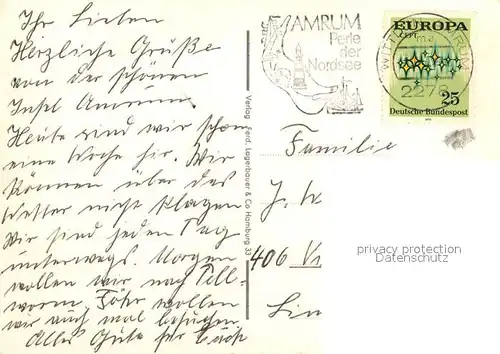 Ihr Lieben
Herzliche Grüße
von der schönen
Insel Amrum.
Heute sind wir schon
eine Woche hir. Wir
können über das
Wetter nicht klagen
Wir sind jeden Tag
unterwegs. Morgen
wollen wir nach Tell-
worm. Föhr wollen
wir auch mal besuchen
Alles Gute für
Verlag Ferd. Lagerbauer & Co Hamburg 33
AMRUM
Perle
der
Nordsee
WITTDÜN AMRUM
2278
EUROPA
CEPT
25
Deutsche Bundespost
Familie
J. W
406 Vi
Lin
privacy protection
Datenschutz